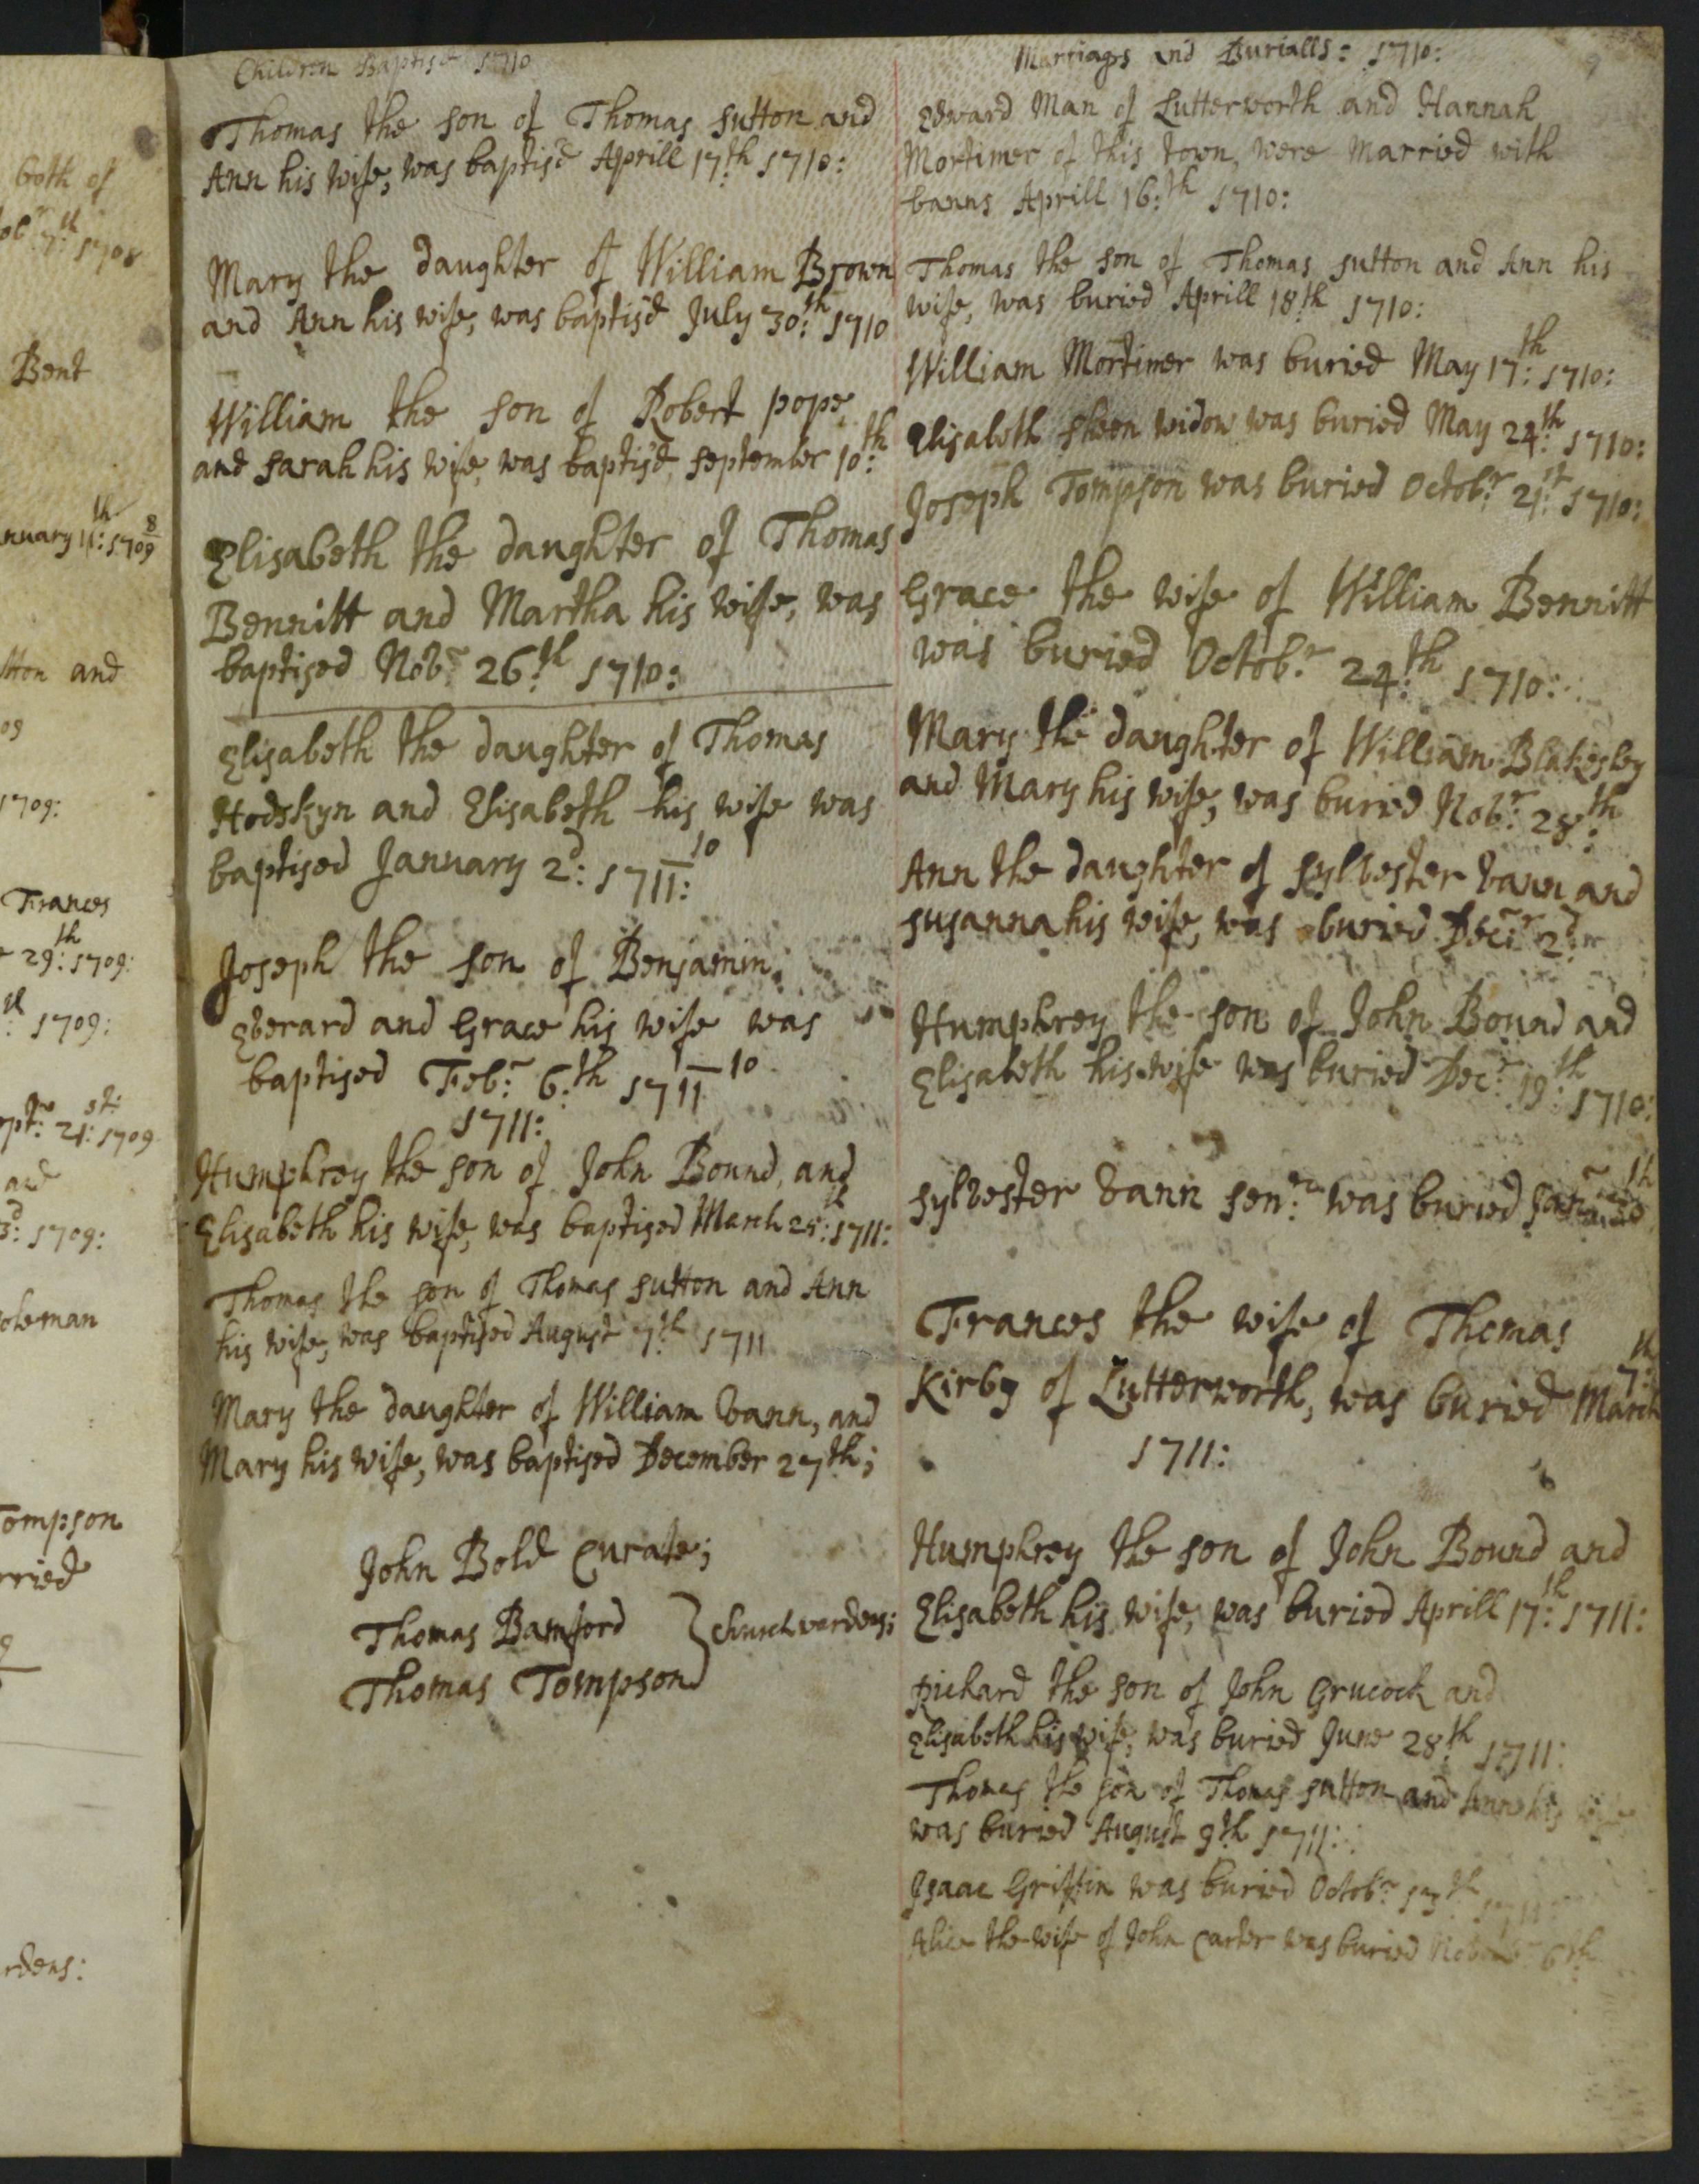 both of
7th 1708
Bent
nuary 11th: 1708/9
tton and
09
1709:
Frances
29th: 1709:
1709:
21st: 1709
and
3d: 1709:
oleman
Tompson
rried
rdens:
Children Baptisd 1710
Thomas the son of Thomas sutton and
Ann his wife, was baptis'd Aprill 17th 1710:
Mary the daughter of William Brown
and Ann his wife, was baptis'd July 30:th 1710
William the son of Robert pope
and sarah his wife, was baptis'd, september 10:th
Elisabeth the daughter of Thomas
Bennitt and Martha his wife, was
baptised Nobr. 26:th 1710:
Elisabeth the daughter of Thomas
Hodskyn and Elisabeth his wife was
baptised January 2d: 1710/11:
Joseph the son of Benjamin
Everard and Grace his wife was
baptised Febr. 6:th 1710/11
1711:
Humphrey the son of John Bound, and
Elisabeth his wife, was baptised March 25th: 1711:
Thomas the son of Thomas sutton and Ann
his wife, was baptised August 7th 1711
Mary the daughter of William Vann, and
Mary his wife, was baptised December 27th;
John Bold Curate;
Thomas Bamford } Churchwardens;
Thomas Tompson
Marriages and Burialls: 1710:
Edward Man of Lutterworth and Hannah
Mortimer of this town, were Married with
banns Aprill 16:th 1710:
Thomas the son of Thomas sutton and Ann his
wife, was buried Aprill 18th 1710:
William Mortimer was buried May 17:th 1710:
Elisabeth sheen widow was buried May 24:th 1710:
Joseph Tompson was buried Octobr. 21:st 1710:
Grace the wife of William Bennitt
was buried Octobr. 24:th 1710:
Mary the daughter of William Blakesley
and Mary his wife, was buried Nobr. 28:th
Ann the daughter of sylvester Vann and
susanna his wife, was buried Decr. 2d:
Humphrey the son of John Bound and
Elisabeth his wife was buried Decr. 19:th 1710:
sylvester Vann senr. was buried
Frances the wife of Thomas
Kirby of Lutterworth, was buried March 7:th
1711:
Humphrey the son of John Bound and
Elisabeth his wife, was buried Aprill 17:th 1711:
Richard the son of John Grucock and
Elisabeth his wife, was buried June 28th 1711:
Thomas the son of Thomas sutton and Ann his wife
was buried August 9th 1711:
Isaac Griffin was buried Octobr.
Alice the wife of John Carter was buried 6th